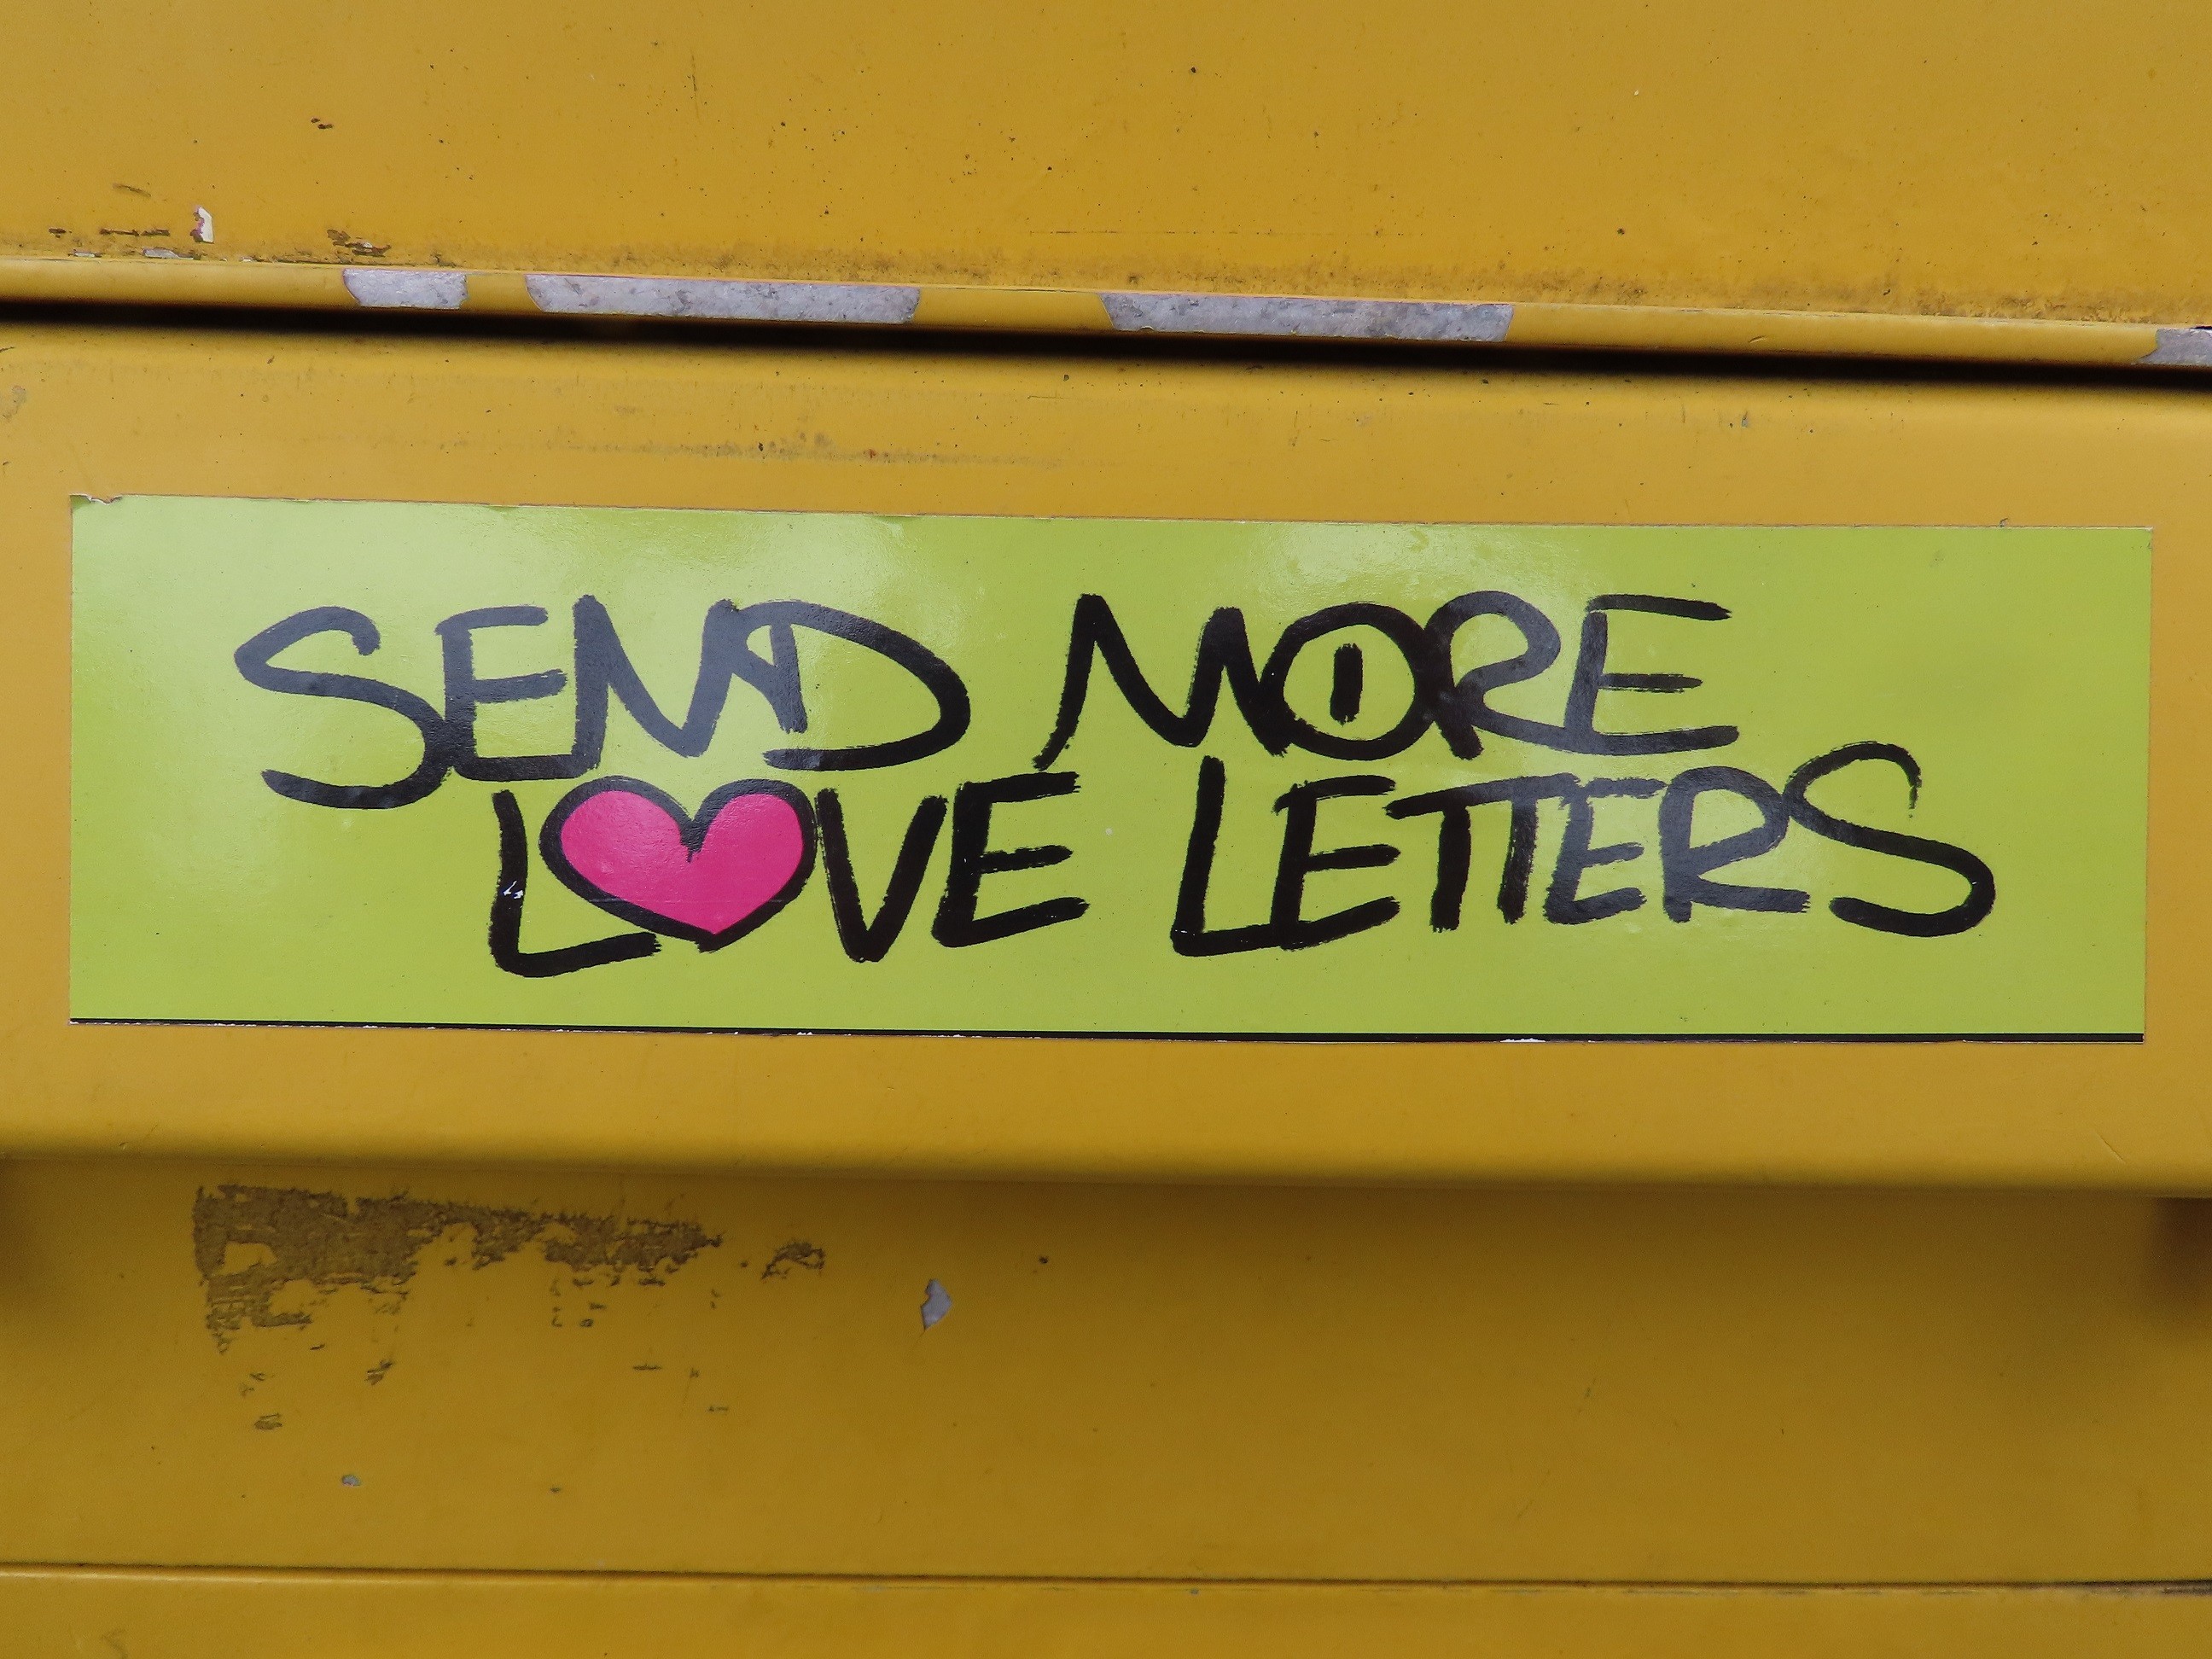 SEND MORE
LOVE LETTERS